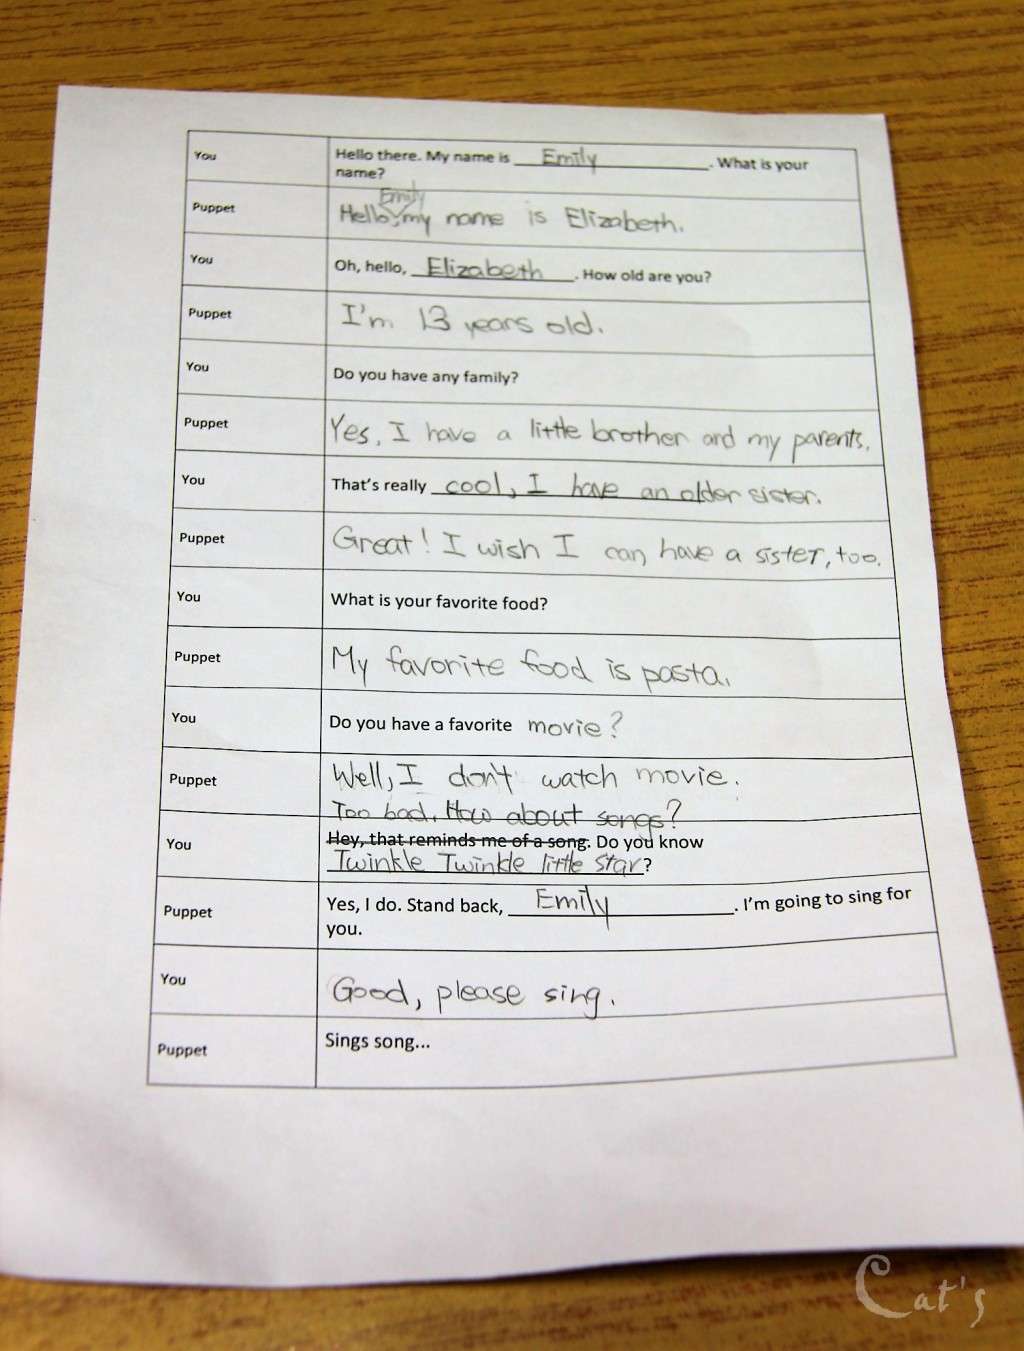 You
Hello there. My name is Emily. What is your
name?
Puppet
Emily
Hello, my name is Elizabeth.
You
Oh, hello, Elizabeth. How old are you?
Puppet
I'm 13 years old.
You
Do you have any family?
Puppet
Yes, I have a little brother and my parents.
You
That's really cool, I have an older sister.
Puppet
Great! I wish I can have a sister, too.
You
What is your favorite food?
Puppet
My favorite food is pasta.
You
Do you have a favorite movie?
Puppet
Well, I don't watch movie.
Too bad. How about songs?
You
Hey, that reminds me of a song. Do you know
Twinkle Twinkle little star?
Puppet
Yes, I do. Stand back, Emily. I'm going to sing for
you.
You
Good, please sing.
Puppet
Sings song...
Cat's